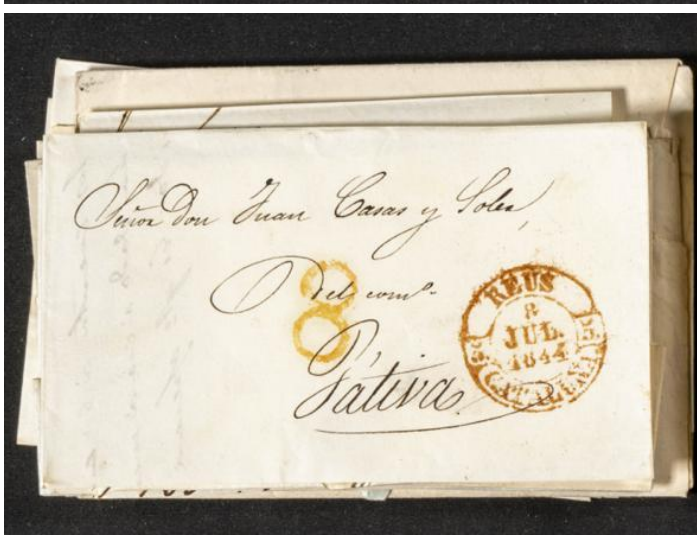 Señor Don Juan Casas y Soler,
8
del comº.
Játiva
REUS
8
JUL.
1844
CATALUÑA